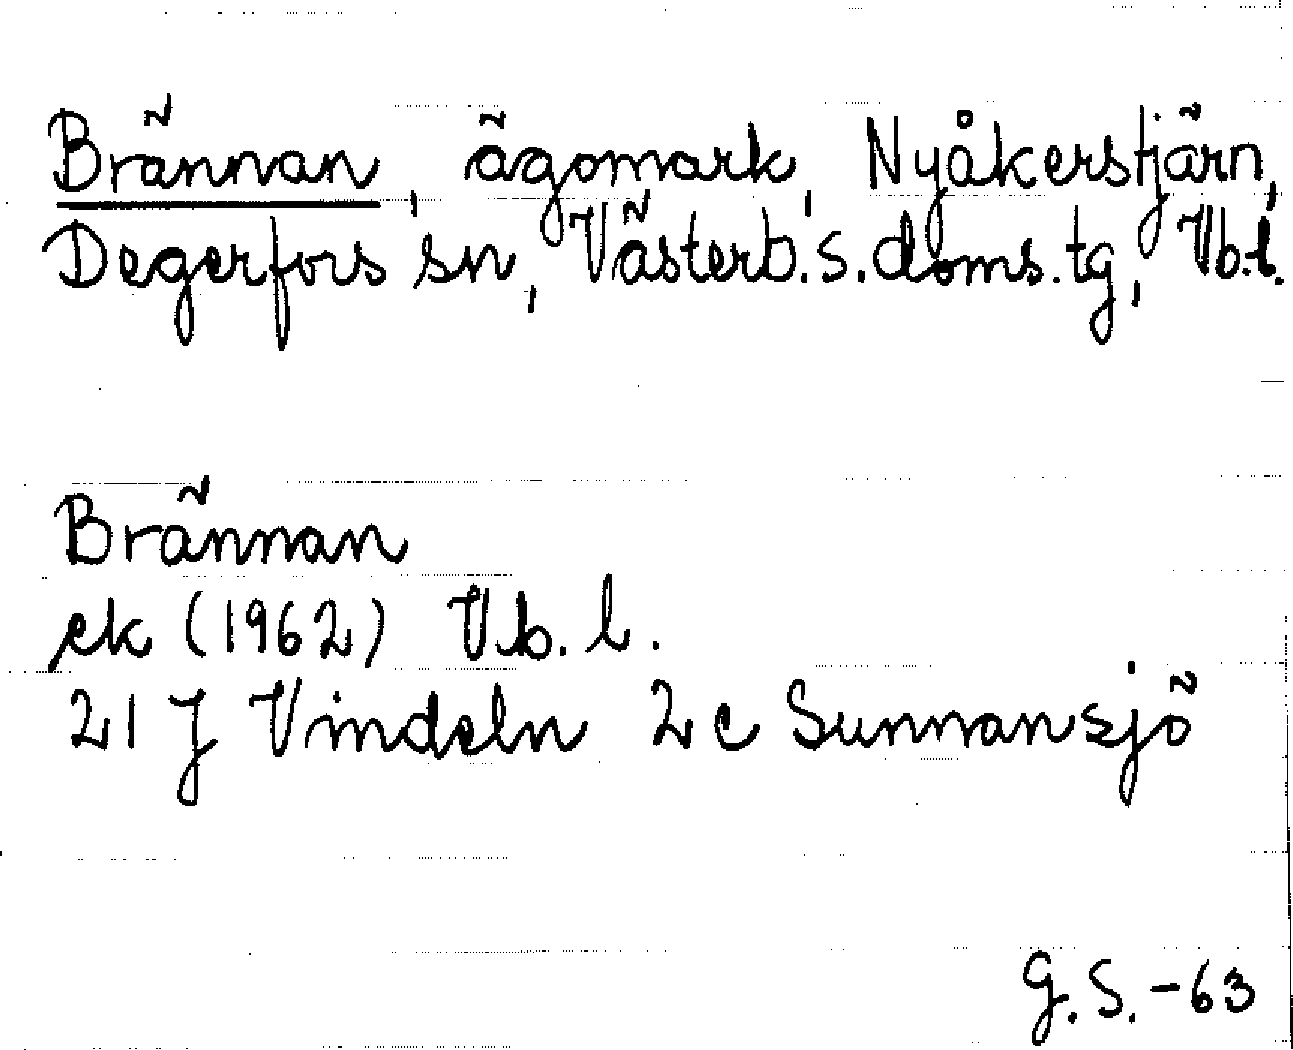 Brännan, ägomark, Nyåkerstjärn,
Degerfors sn, Västerb. s. doms. tg, Vb. l.
Brännan
ek (1962) Vb. l.
21 J Vindeln 2 c Sunnansjö
G. S. -63